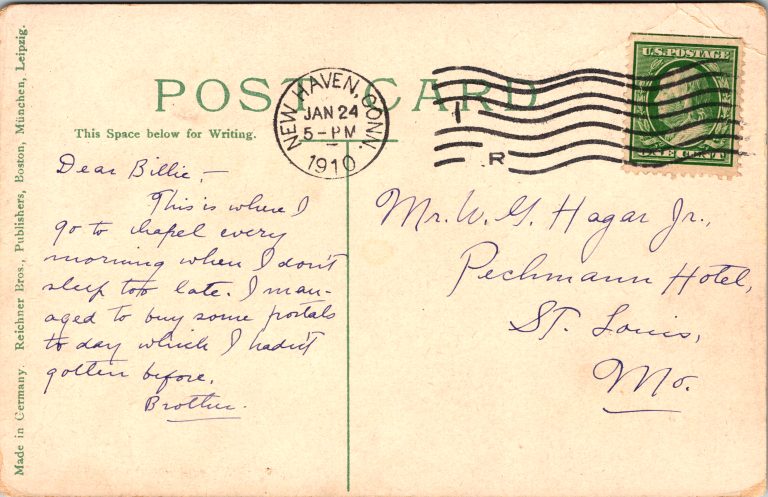 POST CARD
This Space below for Writing.
NEW HAVEN, CONN.
JAN 24
5 - PM
1910
R
U.S. POSTAGE
ONE CENT
Dear Billie, —
This is where I
go to chapel every
morning when I don't
sleep too late. I man-
aged to buy some postals
to day which I hadn't
gotten before.
Brother.
Mr. W. G. Hagar Jr.,
Pechmann Hotel,
St. Louis,
Mo.
Made in Germany. Reichner Bros., Publishers, Boston, München, Leipzig.